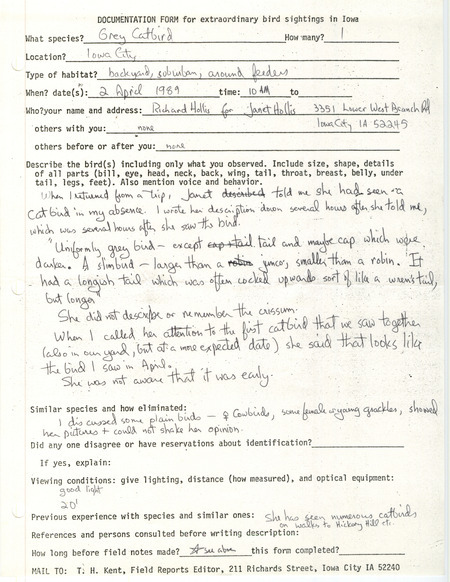 DOCUMENTATION FORM for extraordinary bird sightings in Iowa
What species? Grey Catbird How many? 1
Location? Iowa City
Type of habitat? backyard, suburban, around feeders
When? date(s): 2 April 1989 time: 10 AM to
Who? your name and address: Richard Hollis for Janet Hollis 3351 Lower West Branch Rd
others with you: none Iowa City IA 52245
others before or after you: none
Describe the bird(s) including only what you observed. Include size, shape, details
of all parts (bill, eye, head, neck, back, wing, tail, throat, breast, belly, under
tail, legs, feet). Also mention voice and behavior.
When I returned from a trip, Janet described told me she had seen a
catbird in my absence. I wrote her description down several hours after she told me,
which was several hours after she saw the bird.
"Uniformly grey bird - except cap + tail tail and maybe cap which were
darker. A slim bird - larger than a robin junco, smaller than a robin. It
had a longish tail which was often cocked upwards sort of like a wren's tail,
but longer"
She did not describe or remember the crissum.
When I called her attention to the first catbird that we saw together
(also in our yard, but at a more expected date) she said that looks like
the bird I saw in April.
She was not aware that it was early.
Similar species and how eliminated:
I discussed some plain birds - ♀ Cowbirds, some female or young grackles, showed
her pictures + could not shake her opinion.
Did any one disagree or have reservations about identification?
If yes, explain:
Viewing conditions: give lighting, distance (how measured), and optical equipment:
good light
20'
Previous experience with species and similar ones: She has seen numerous catbirds
on walks to Hickory Hill etc.
References and persons consulted before writing description:
How long before field notes made? * see above this form completed?
MAIL TO: T. H. Kent, Field Reports Editor, 211 Richards Street, Iowa City IA 52240